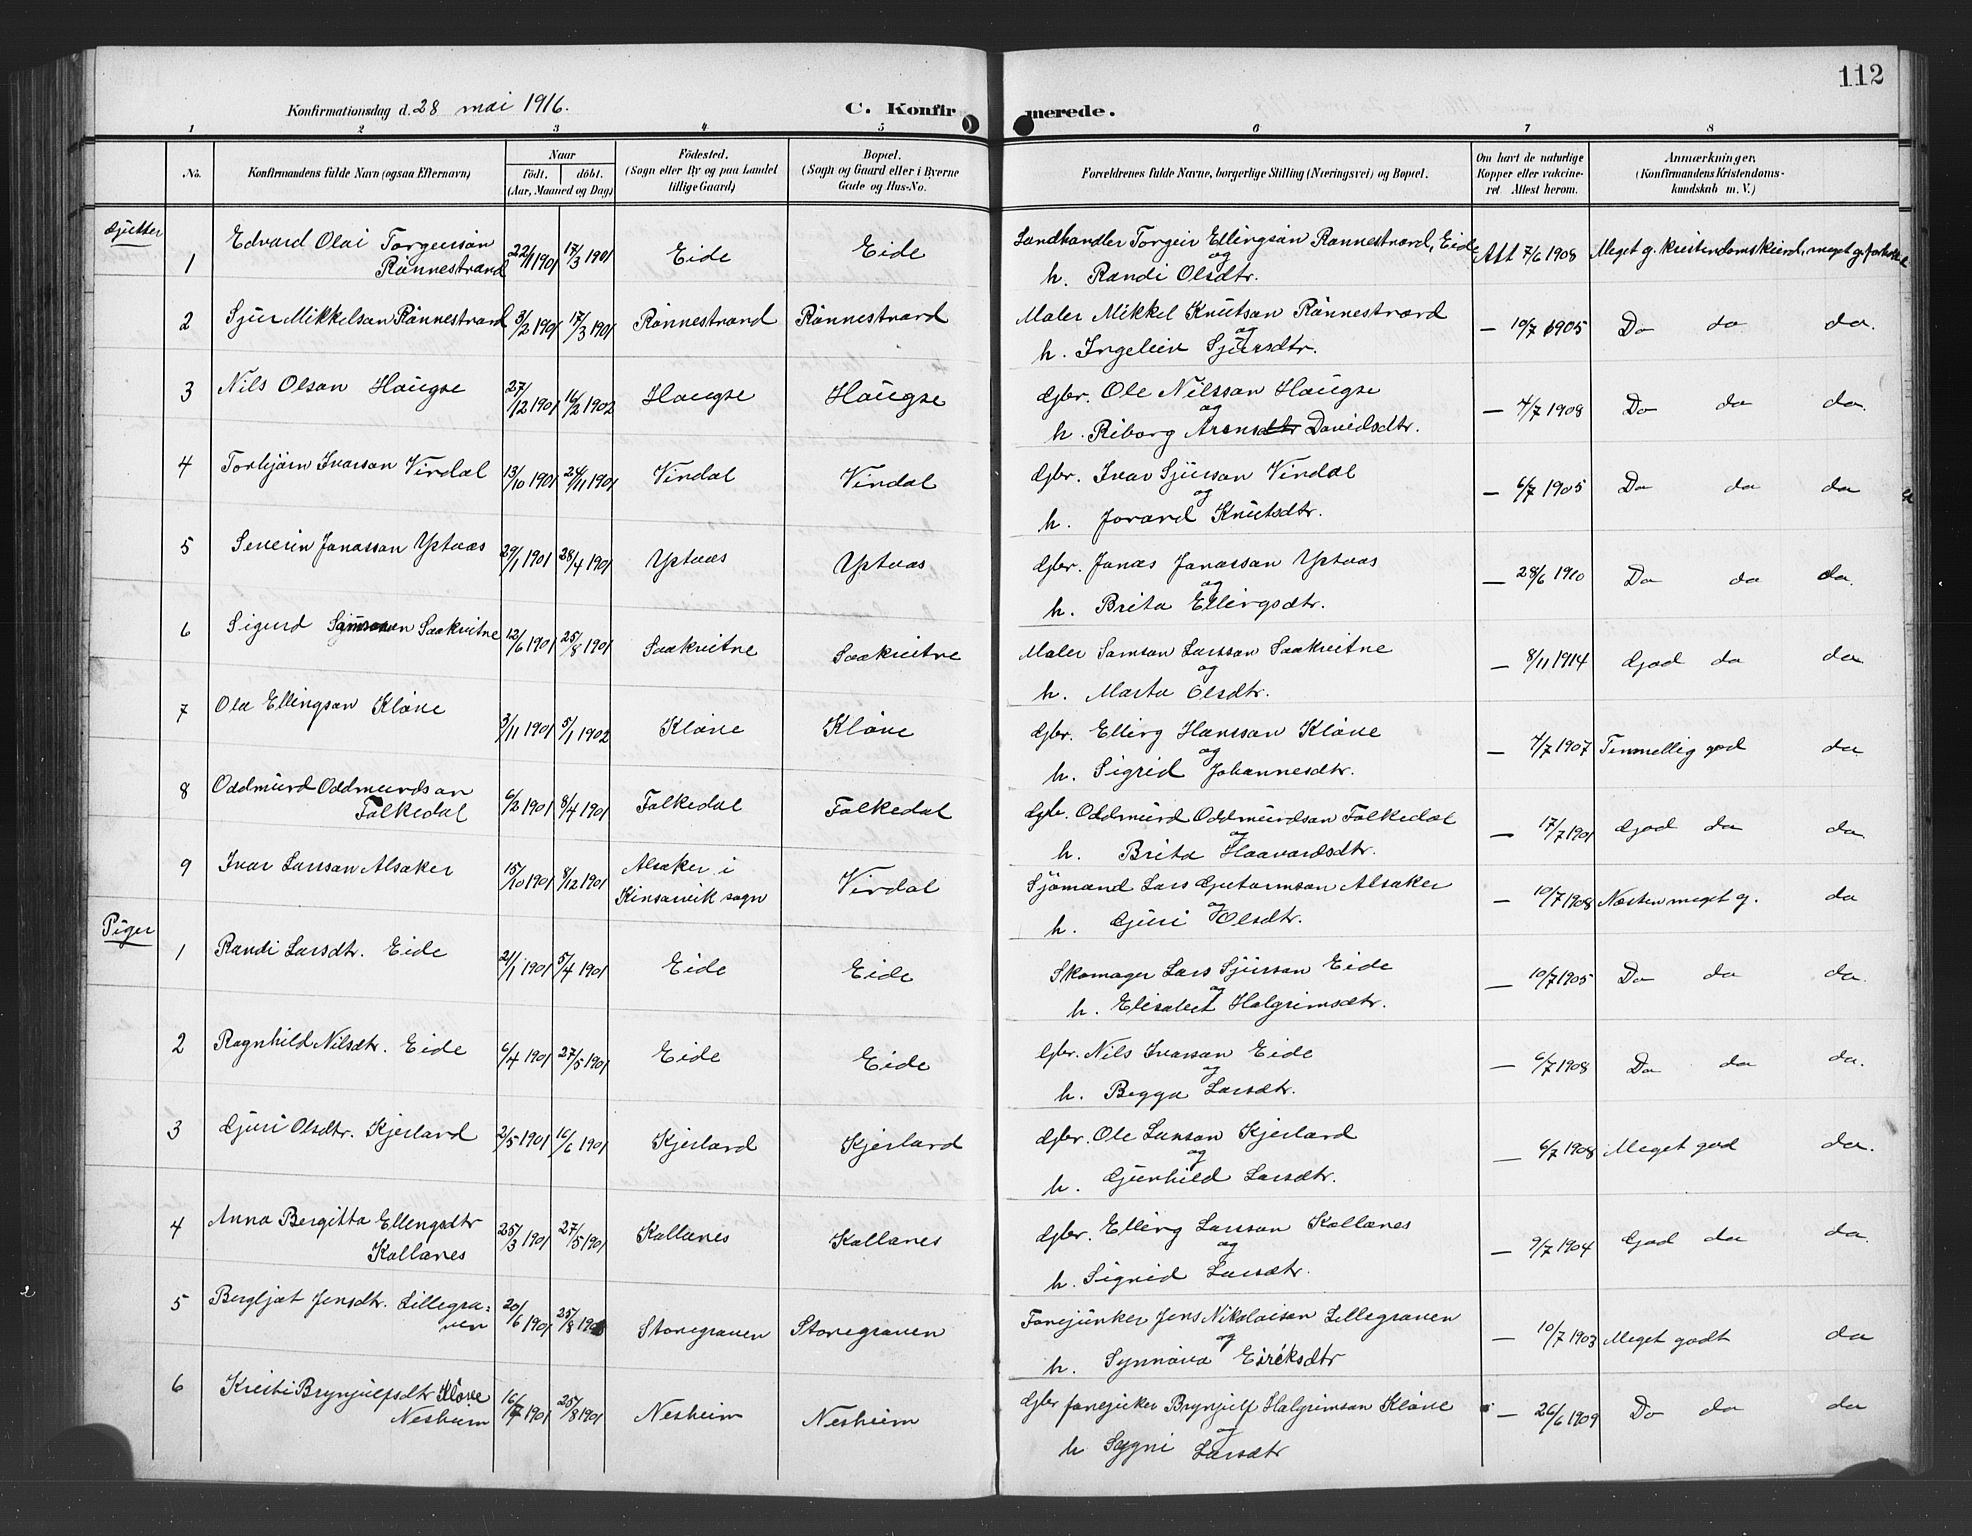 112
Konfirmationsdag d. 28 mai 1916.
C. Konfirmerede.
1 2 3 4 5 6 7 8
No.
Konfirmandens fulde Navn (ogsaa Efternavn)
Naar
født. døbt.
(Aar, Maaned og Dag)
Fødested.
(Sogn eller By og paa Landet
tillige Gaard)
Bopæl.
(Sogn og Gaard eller i Byerne
Gade og Hus-No.
Forældrenes fulde Navne, borgerlige Stilling (Næringsvei) og Bopæl.
Om havt de naturlige
Kopper eller vakcine-
ret Attest herom.
Anmærkninger,
(Konfirmandens Kristendoms-
kundskab m. V.)
Gutter
1 Edvard Olai Torgeirson Rønnestrand 22/1 1901 17/3 1901 Eide Eide Landhandler Torgeir Ellingsøn Rønnestrand, Eide
og
h. Randi Olsdtr. Att 7/6 1908 Meget g. kristendomskund., meget g. forhold
2 Sjur Mikkelson Rønnestrand 3/2 1901 17/3 1901 Rønnestrand Rønnestrand Maler Mikkel Knutson Rønnestrand
og
h. Ingeleiv Sjursdtr. — 10/7 1905 Do do do.
3 Nils Olson Haugse 27/12 1901 16/2 1902 Haugse Haugse Gbr. Ole Nilsson Haugse
og
h. Riborg Arensdtr Davidsdtr. — 4/7 1908 Do do do.
4 Torbjørn Ivarson Vindal 13/10 1901 24/11 1901 Vindal Vindal Gbr. Ivar Sjurson Vindal
og
h. Jorand Knutsdtr. — 6/7 1905 Do do do
5 Severin Jonasson Yptvæs 29/1 1901 28/4 1901 Yptvæs Yptvæs Gbr. Jonas Jonasson Yptvæs
og
h. Brita Ellingsdtr. — 28/6 1910 Do do do.
6 Sigurd Samsonson Saakvitne 12/6 1901 25/8 1901 Saakvitne Saakvitne Maler Samson Larsson Saakvitne
og
h. Marta Olsdtr. — 8/11 1914 God do do
7 Ola Ellingson Kløve 3/11 1901 5/1 1902 Kløve Kløve Gbr. Elling Hansson Kløve
og
h. Sigrid Johannesdtr. — 4/7 1907 Temmelig god do
8 Oddmund Oddmundson Folkedal 6/2 1901 8/4 1901 Folkedal Folkedal Gbr. Oddmund Oddmundson Folkedal
og
h. Brita Haavardsdtr. — 17/7 1901 God do do
9 Ivar Larsson Alsaker 15/10 1901 8/12 1901 Alsaker i Kinsarvik sogn Virdal Sjömand Lars Gutormson Alsaker
og
h. Guri Olsdtr. — 10/7 1908 Næsten meget g. do
Piger
1 Randi Larsdtr. Eide 21/1 1901 5/4 1901 Eide Eide Skomager Lars Sjurson Eide
og
h. Elisabet Halgrimsdtr. — 10/7 1905 Do do do.
2 Ragnhild Nilsdtr. Eide 6/4 1901 27/5 1901 Eide Eide Gbr. Nils Ivarson Eide
og
h. Begga Larsdtr. — 6/7 1908 Do do do.
3 Guri Olsdtr. Kjerland 2/5 1901 16/6 1901 Kjerland Kjerland Gbr. Ole Larsson Kjerland
og
h. Gunhild Larsdtr. — 6/7 1908 Meget god do.
4 Anna Bergitta Ellingsdtr Kollanes 25/3 1901 27/5 1901 Kollanes Kollanes Gbr. Elling Larsson Kollanes
og
h. Sigrid Larsdtr. — 9/7 1904 God do do.
5 Bergljot Jensdtr. Lillegraven 20/6 1901 25/8 1901 Storegraven Storegraven Fanejunker Jens Nikolaison Lillegraven
og
h. Synnøva Eiriksdtr — 10/7 1903 Meget godt do
6 Kristi Brynjulfsdtr Kløve Nesheim 16/7 1901 25/8 1901 Nesheim Nesheim Gbr fanejuker Brynjulf Halgrimson Kløve
og
h Sygni Larsdtr — 26/6 1909 Do do do